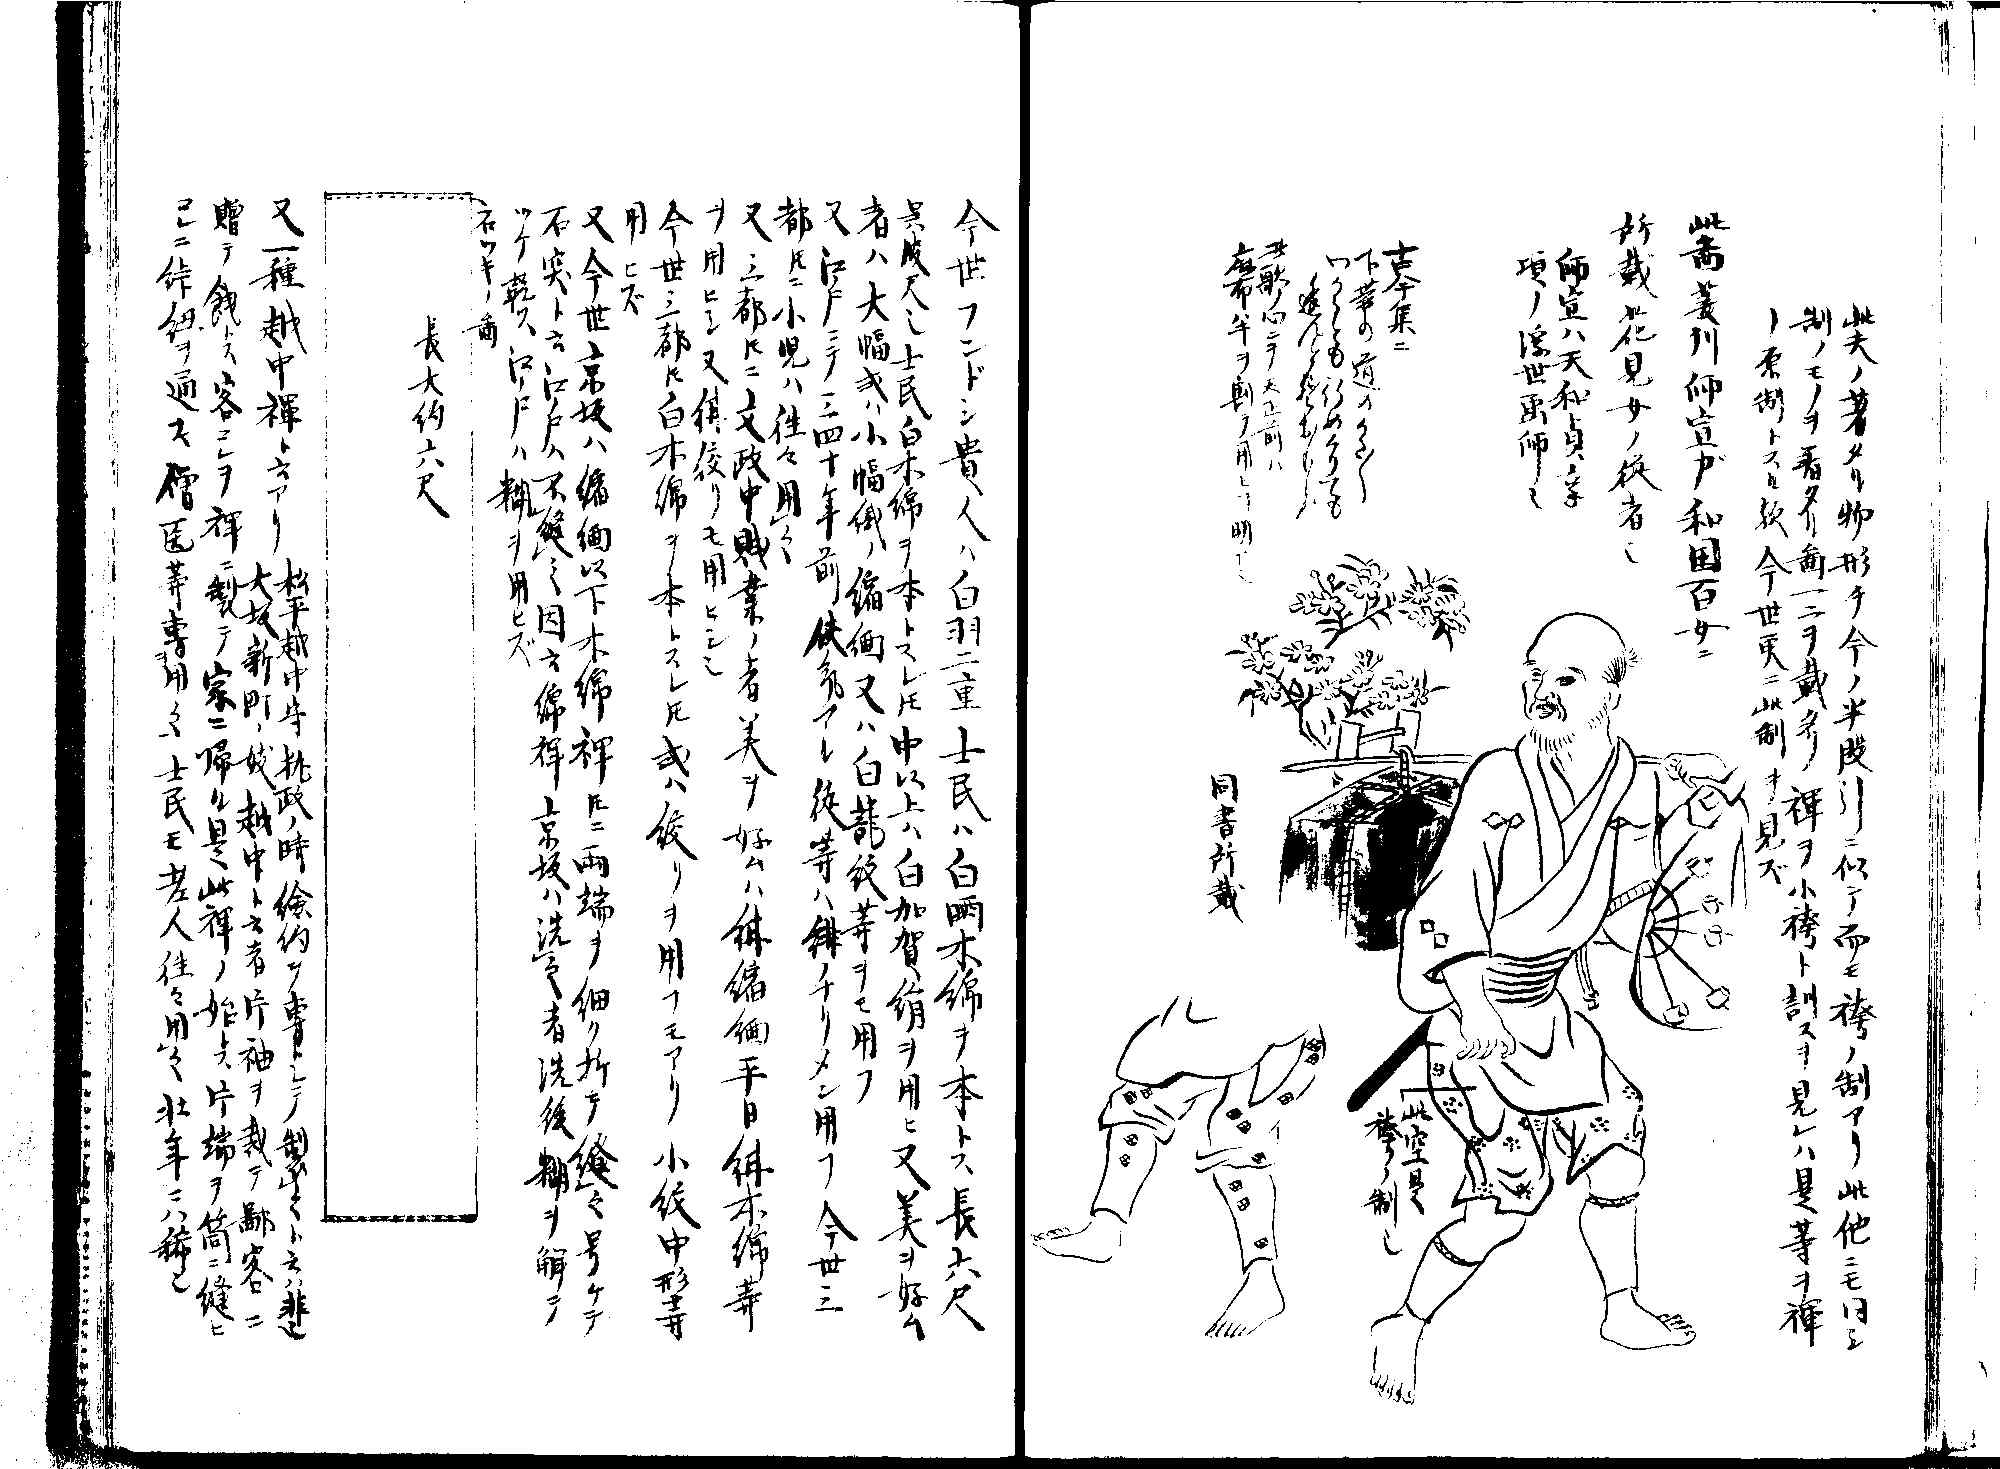 此夫ノ著タリ物形チ今ノ半股引ニ似テ而モ袴ノ制アリ此他ニモ同シ
制ノモノヲ着タル図一二ヲ載タリ褌ヲ小袴ト訓スヲ見レハ是等ヲ褌
ノ原制トスル歟今世更ニ此制ヲ見ズ
此図菱川師宣ガ和国百女ニ
所載花見女ノ従者也
師宣ハ天和貞享
頃ノ浮世画師也
古今集ニ
下帯の道の
此歌ノ心ニテ天正前ハ
同書所載
此空是
袴ノ制也
今世フンドシ貴人ハ白羽二重士民ハ白晒木綿ヲ本トス長六尺
呉服尺也士民白木綿ヲ本トスレ𪜈中以上ハ白加賀絹ヲ用ヒ又美ヲ好ム
者ハ大幅或ハ小幅織ノ縮緬又ハ白龍紋等ヲモ用フ
又江戸ニテ三四十年前侠気アル徒等ハ緋チリメン用フ今世三
都𪜈ニ小児ハ往々用之
又三都𪜈ニ文政中賎業ノ者美ヲ好ムハ緋縮緬平日緋木綿等
ヲ用ヒシ又緋絞リモ用ヒシ也
今世三都𪜈白木綿ヲ本トスレ𪜈或ハ絞リヲ用フモアリ小紋中形等
用ヒズ
又今世京坂ハ縮緬以下木綿褌𪜈ニ両端ヲ細ク折テ縫之号ケテ
石突ト云江戸ハ不縫之因云綿褌京坂ハ洗之者洗後糊ヲ解テ
ツケ軽ス江戸ハ糊ヲ用ヒズ
石ツキノ図
長大約六尺
又一種越中褌ト云アリ
松平越中守執政ノ時倹約ヲ専トシテ制之ト云ハ非也
大坂新町ノ妓越中ト云者片袖ヲ裁テ鄙客ニ
贈テ餞トス客コレヲ褌ニ製テ家ニ帰ル是此褌ノ始トス片端ヲ筒ニ縫ヒ
コレニ紐ヲ通ス僧医等専用之士民モ老人往々用之壮年ニハ稀也